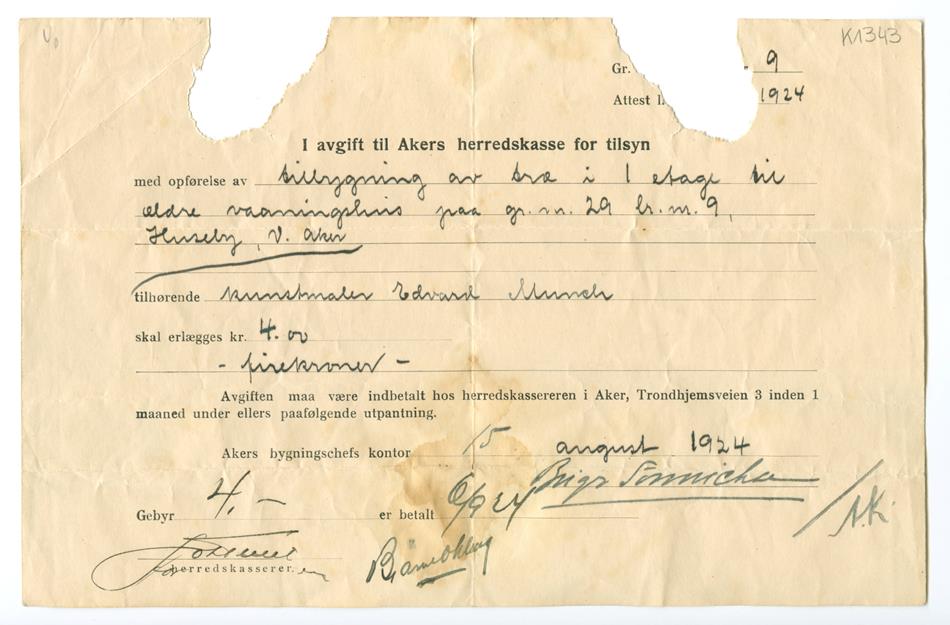 K1343
Gr. 9
Attest 1924
I avgift til Akers herredskasse for tilsyn
med opførelse av tilbygning av træ i 1 etage til
ældre vaaningshus paa gr. n. 29 br. n. 9,
Huseby, V. Aker
tilhørende kunstmaler Edvard Munch
skal erlægges kr. 4.00
- firekroner -
Avgiften maa være indbetalt hos herredskassereren i Aker, Trondhjemsveien 3 inden 1
maaned under ellers paafølgende utpantning.
Akers bygningschefs kontor 15 august 1924
Gebyr 4.- er betalt
A.K.
herredskasserer.